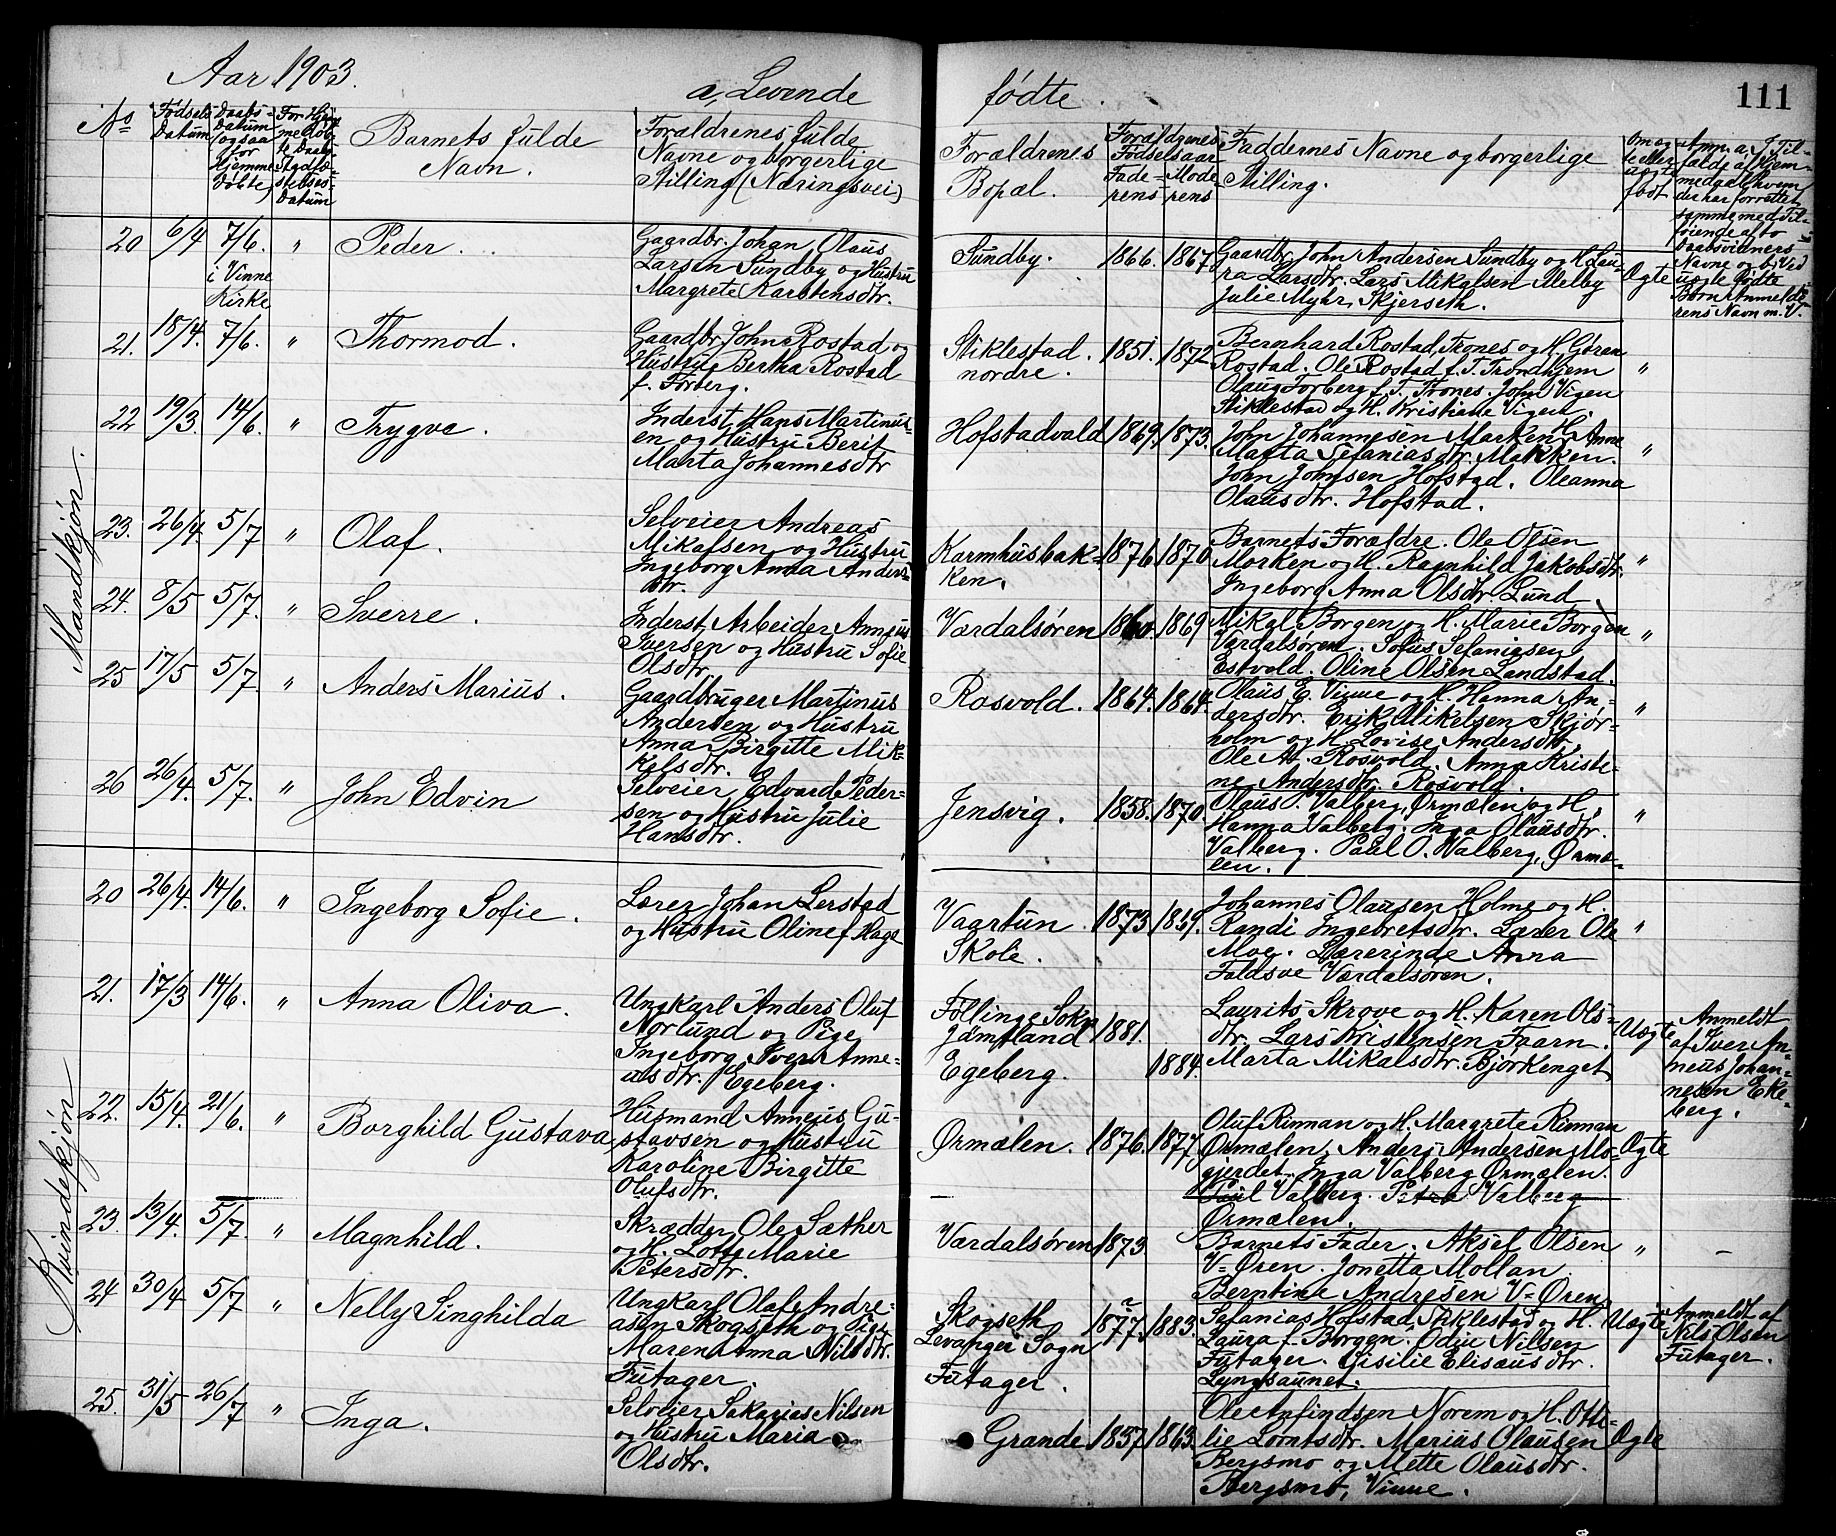 Aar 1903.
a, Levende fødte.
111
No
Fødsels Datum
Daabs-Datum (ogsaa for Hjemme Døbte)
Barnets fulde Navn.
Forældrenes fulde Navne og borgerlige Stilling (Næringsvei)
Forældrenes Bopæl.
Forældrenes Fødselsaar
Fade-rens
Mode-rens
Faddernes Navne og borgerlige Stilling.
Om ægte eller uægte født
Mandkjøn.
20 6/4 7/6. i Vinne Kirke " Peder.
Gaardbr. Johan Olaus
Larsen Sundby og Hustru
Margrete Karstensdtr.
Sundby. 1866. 1867
Gaardbr. John Andersen Sundby og H. Lau-
ra Larsdtr. Lars Mikalsen Melby
Julie Myhr, Skjerseth.
Ægte
21. 18/4. 7/6. " Thormod.
Gaardbr. John Rostad og
Hustru Bertha Rostad
f. Forberg.
Stiklestad nordre. 1851. 1872
Bernhard Rostad, Trones og H. Gøren
Rostad. Ole Rostad f. T. Trondhjem
Olaug Forberg f. T. Trones. John Vigen
Stiklestad og H. Kristiane Vigen.
"
22 19/3. 14/6. " Trygve.
Inderst Hans Martinus-
en og Hustru Berit
Marta Johannesdtr
Hofstadvald 1869. 1873.
John Johannesen Marken H. Anne
Marta Sefaniasdtr. Makken.
John Johnsen Hofstad. Oleanna
Olausdtr. Hofstad.
"
23. 26/4. 5/7 " Olaf.
Selveier Andreas
Mikalsen og Hustru
Ingeborg Anna Anders-
dtr.
Karmhusbak-
ken. 1876. 1870.
Barnets Forældre. Ole Olsen
Morken og H. Ragnhild Jakobsdtr.
Ingeborg Anna Olsdtr Lund.
"
24. 8/5 5/7. " Sverre.
Inderst Arbeider Anneus
Iversen og Hustru Sofie
Olsdtr.
Værdalsøren 1860. 1869
Mikal Borgen og H. Marie Borgen
Værdalsøren. Sofus Sefaniasen
Estvold. Oline Olsen Landstad.
"
25 17/5 5/7. " Anders Marius.
Gaardbruger Martinus
Andersen og Hustru
Anna Birgitte Mik-
kelsdtr.
Rosvold. 1864. 1864.
Olaus E. Vinne og H. Hanna An-
dersdtr. Erik Mikelsen Skjør-
holm og H. Lovise Andersdtr.
Ole At. Rosvold. Anna Kristi-
ne Andersdtr. Rosvold.
"
26 26/4. 5/7. " John Edvin
Selveier Edvard Peder-
sen og Hustru Julie
Hansdtr.
Jensvig. 1858. 1870.
Olaus P. Valberg, Ørmælen og H.
Hanna Valberg. Inga Olausdtr.
Valberg. Paul O. Valberg, Ørmæ-
len.
"
Kvindekjøn.
20 26/4. 14/6. " Ingeborg Sofie.
Lærer Johan Lerstad
og Hustru Oline f. Haga
Vaartun
Skole. 1873. 1869.
Johannes Olausen Holme og H.
Randi Ingebretsdtr. Lærer Ole
Moe. Lærerinde Anna
Faldsve Værdalsøren.
"
21. 17/3 14/6. " Anna Oliva.
Ungkarl Anders Oluf
Norlund og Pige
Ingeborg Iverr Anne-
usdtr. Egeberg.
Føllinge Sokn
Jämtland 1881.
Egeberg. 1884.
Laurits Skrove og H. Karen Ols-
dtr. Lars Kristensen Kvarn.
Marta Mikalsdtr. Bjørkenget
Uægte
Anmeldt
af Iver An-
neus Johan-
nesen Eke-
berg.
22. 15/4. 21/6. " Borghild Gustava
Husmand Anneus Gu-
stavsen og Hustru
Karoline Birgitte
Olufsdtr.
Ørmælen. 1876. 1877
Oluf Rinnan og H. Margrete Rinnan
Ørmælen, Anders Andersen Mo-
gjerdet. Inga Valberg Ørmælen.
Paul Valberg. Petra Valberg
Ørmælen.
Ægte
23. 13/4. 5/7. " Magnhild.
Skrædder Ole Sæther
og H. Lotte Marie
Petersdtr.
Værdalsøren 1873
Barnets Fader. Aksel Olsen
V=Øren. Jonetta Mollan.
Berntine Andresen V=Øren
"
24 30/4 5/7 " Nelly Singhilda
Ungkarl Olaf Andre-
asen Skogseth og Pige
Maren Anna Nilsdtr.
Fætager.
Skogseth
Levanger Sogn
Fætager. 1877. 1883.
Sefanias Hofstad, Stiklestad og H.
Laura f. Borgen. Odin Nilsen
Fætager. Gisilie Elisæusdtr.
Lyngsaunet.
Uægte
Anmeldt af
Nils Olsen
Fætager.
25. 31/5 26/7 " Inga.
Selveier Sakarias Nilsen
og Hustru Maria
Olsdtr.
Grande 1857. 1863.
Ole Anfindsen Norem og H. Otti-
lie Lorntsdtr. Marius Olausen
Bergsmo og Mette Olausdtr.
Bergsmo, Vinne.
Ægte